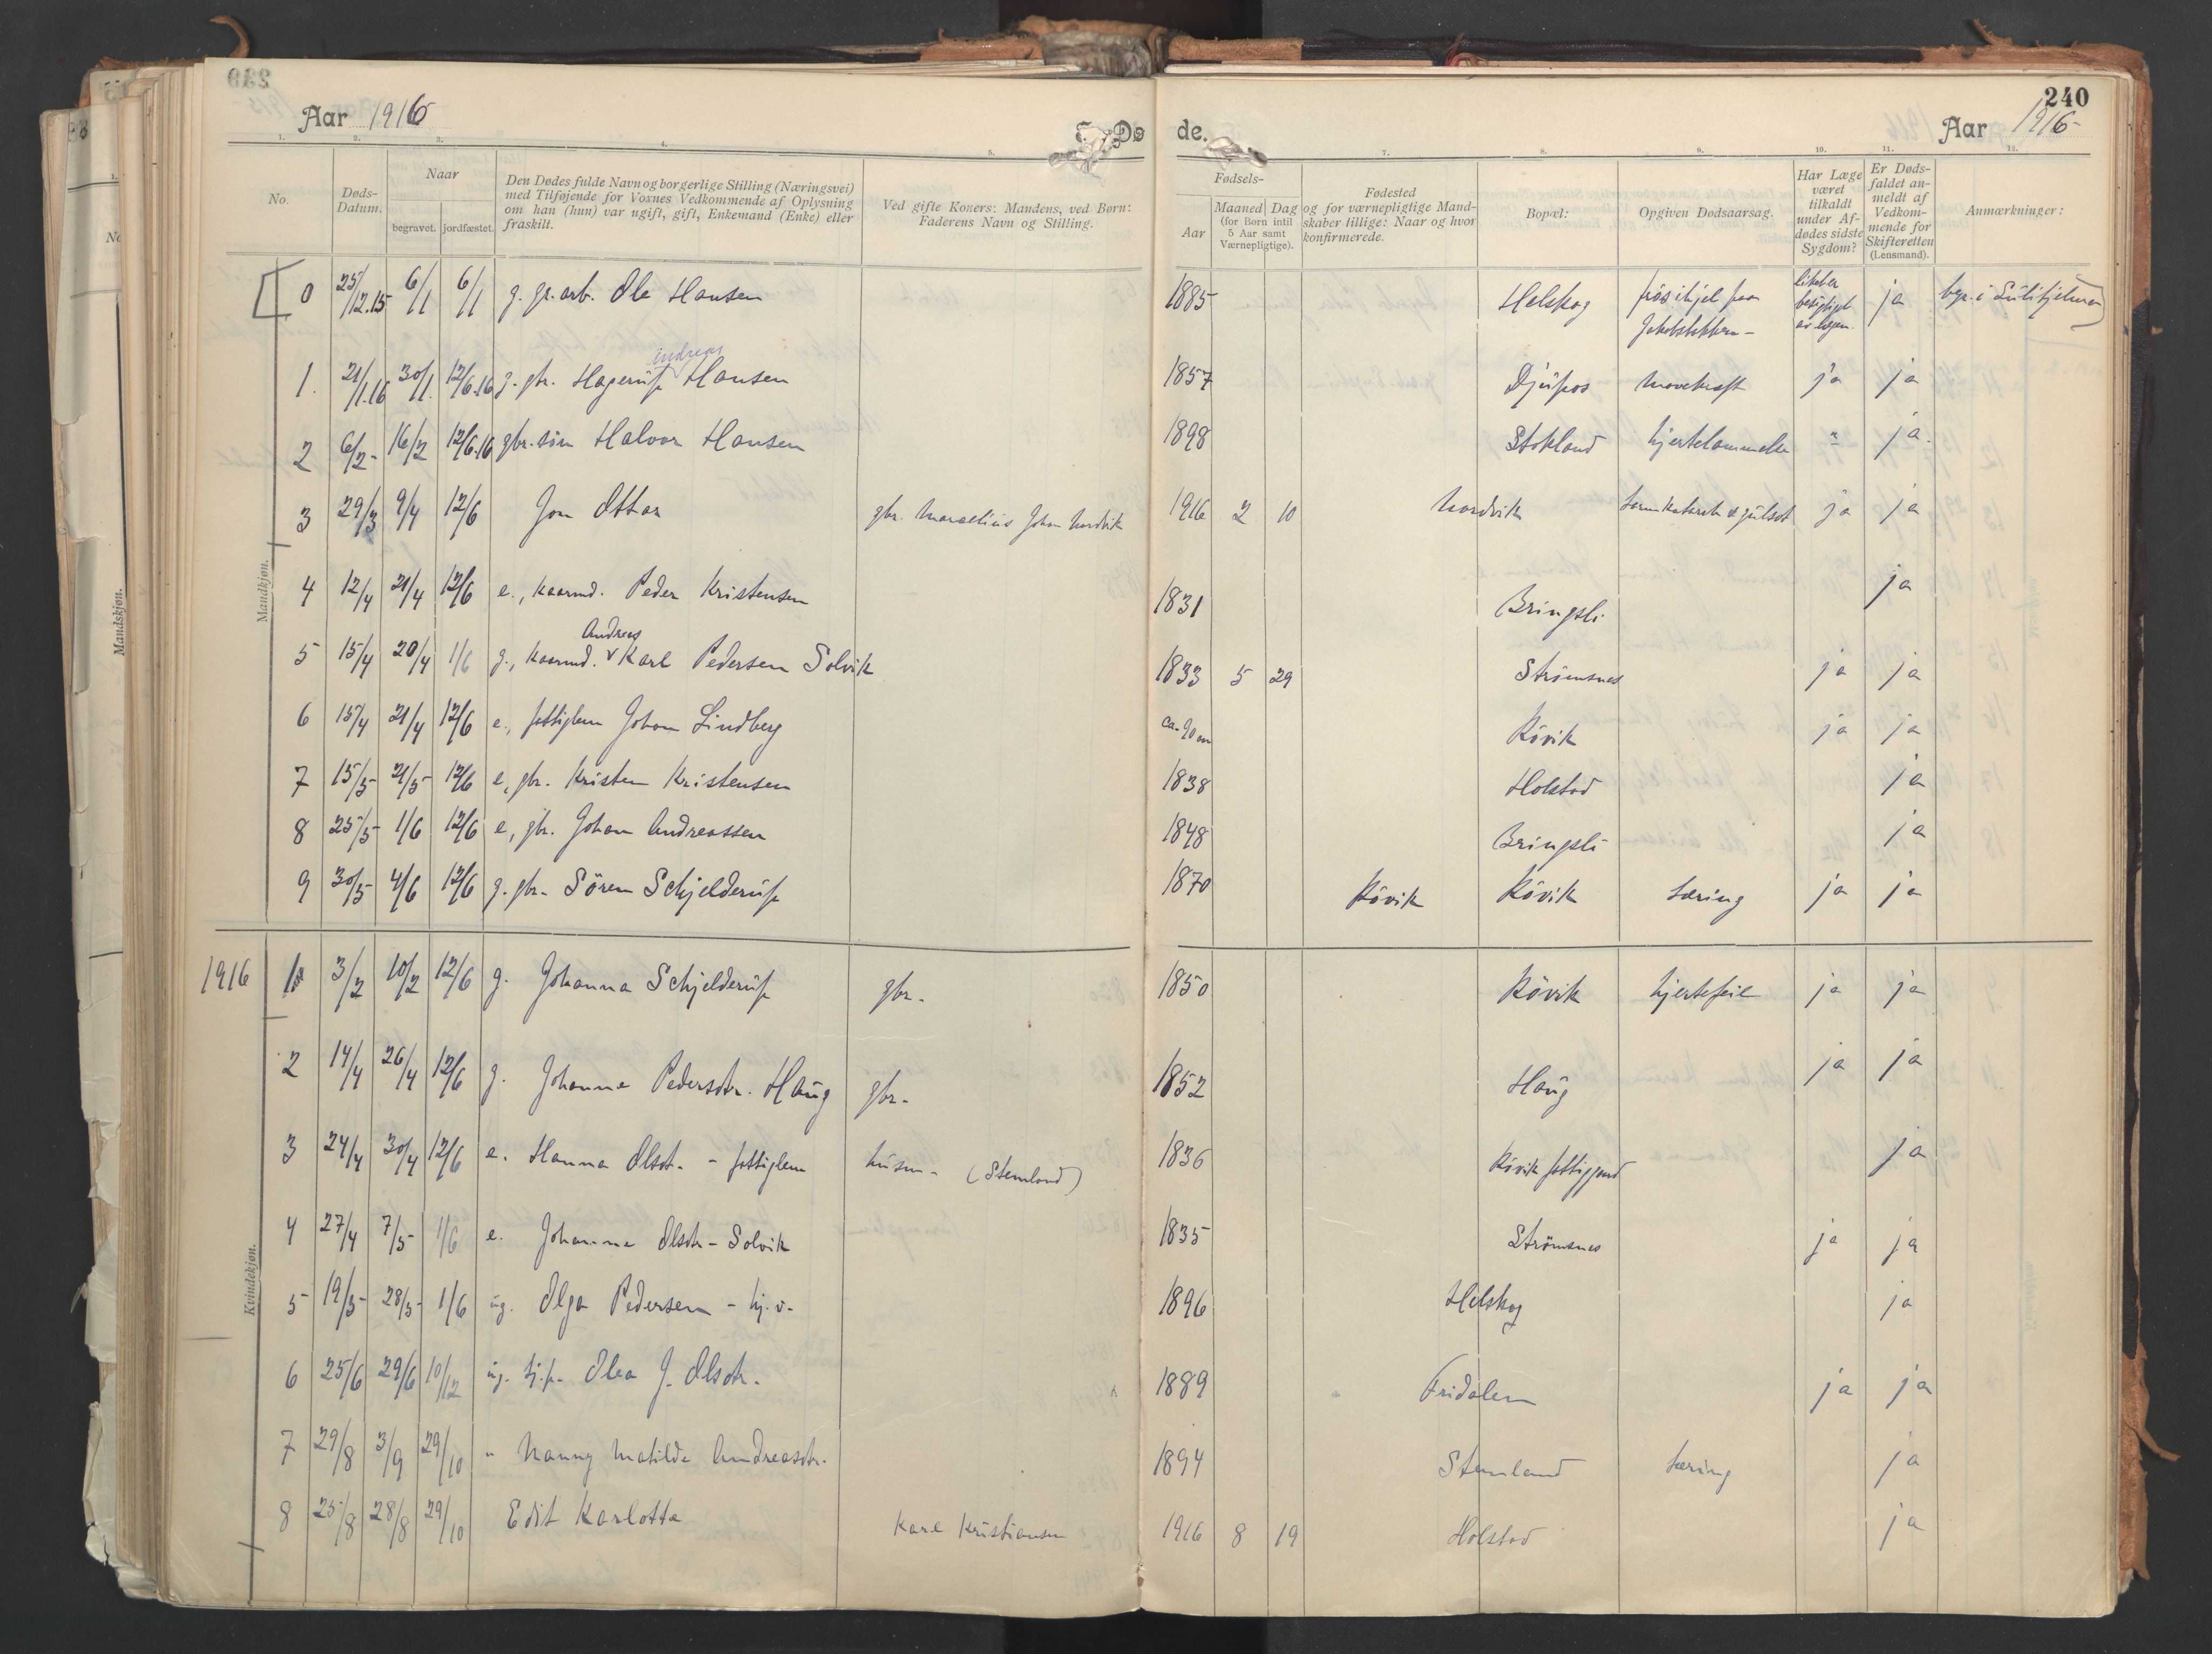 240
Aar 1916
Døde.
Aar 1916
1. 2. 3. 4. 5. 7. 8. 9. 10. 11. 12.
No.
Døds-Datum.
Naar
begravet. jordfæstet.
Den Dødes fulde Navn og borgerlige Stilling (Næringsvei)
med Tilføjende for Voxnes Vedkommende af Oplysning
om han (hun) var ugift, gift, Enkemand (Enke) eller
fraskilt.
Ved gifte Koners: Mandens, ved Børn:
Faderens Navn og Stilling.
Fødsels-
Aar
Maaned Dag
(for Børn intil
5 Aar samt
Værnepligtige).
Fødested
og for værnepligtige Mand-
skaber tillige: Naar og hvor
konfirmerede.
Bopæl:
Opgiven Dødsaarsag.
Har Læge
været
tilkaldt
under Af-
dødes sidste
Sygdom?
Er Døds-
faldet an-
meldt af
Vedkom-
mende for
Skifteretten
(Lensmand).
Anmærkninger:
Mandkjøn.
0 25/12.15 6/1 6/1 g. gr. arb. Ole Hansen 1885 Helskog frøs ihjel paa ja bgr. i Sulitjelma
1. 21/1.16 30/1. 12/6.16 g. gbr. Hagerup Andreas Hansen 1857 Djupos mavekræft ja ja
2 6/2- 16/2 12/6.16 gbr. søn Halvor Hansen 1898 Stokland hjertelammelse " ja.
3 29/3 9/4 12/6 Jon Ottar gbr. Marcelius Johan Nordvik 1916 2 10 Nordvik tarmkatarrh & gulsot ja ja
4 12/4 21/4 12/6 e., kaarmd. Peder Kristensen 1831 Bringsli ja
5 15/4 20/4 1/6 g., kaarmd. Andreas Karl Pedersen Solvik 1833 5 29 Strømsnes ja ja
6 15/4 21/4 12/6 e., fattiglem Johan Lindberg ca. 90 aar Røvik ja ja
7 15/5 21/5- 12/6 e, gbr. Kristen Kristensen 1838 Holstad ja
8 25/5- 1/6 12/6 e, gbr. Johan Andreassen 1848 Bringsli ja
9 30/5- 4/6 12/6 g. gbr. Sören Schjelderup 1870 Røvik Røvik tæring ja ja
Kvindekjøn.
1916 1 3/2 10/2 12/6 g. Johanna Schjelderup gbr. 1850 Røvik hjertefeil ja ja
2 14/4 26/4 12/6 g. Johanna Pedersdtr. Haug gbr. 1852 Haug ja ja
3 24/4 30/4 12/6 e. Hanna Olsdt. - fattiglem husm- (Stemland) 1836 Røvik fattiggaard ja
4 27/4 7/5- 1/6 e. Johanna Olsdtr - Solvik 1835 Strømsnes ja ja
5 19/5- 28/5- 1/6 ug. Olga Pedersen - 1896 Helskog ja
6 25/6 29/6 10/12 ug. tj.p. Olea J. Olsdtr. 1889 Fridalen ja ja
7 29/8 3/9 29/10 " Nanny Matilde Andreasdtr. 1894 Stemland tæring ja
8 25/8 28/8 29/10 Edit Karlotta Karl Kristiansen 1916 8 19 Holstad ja